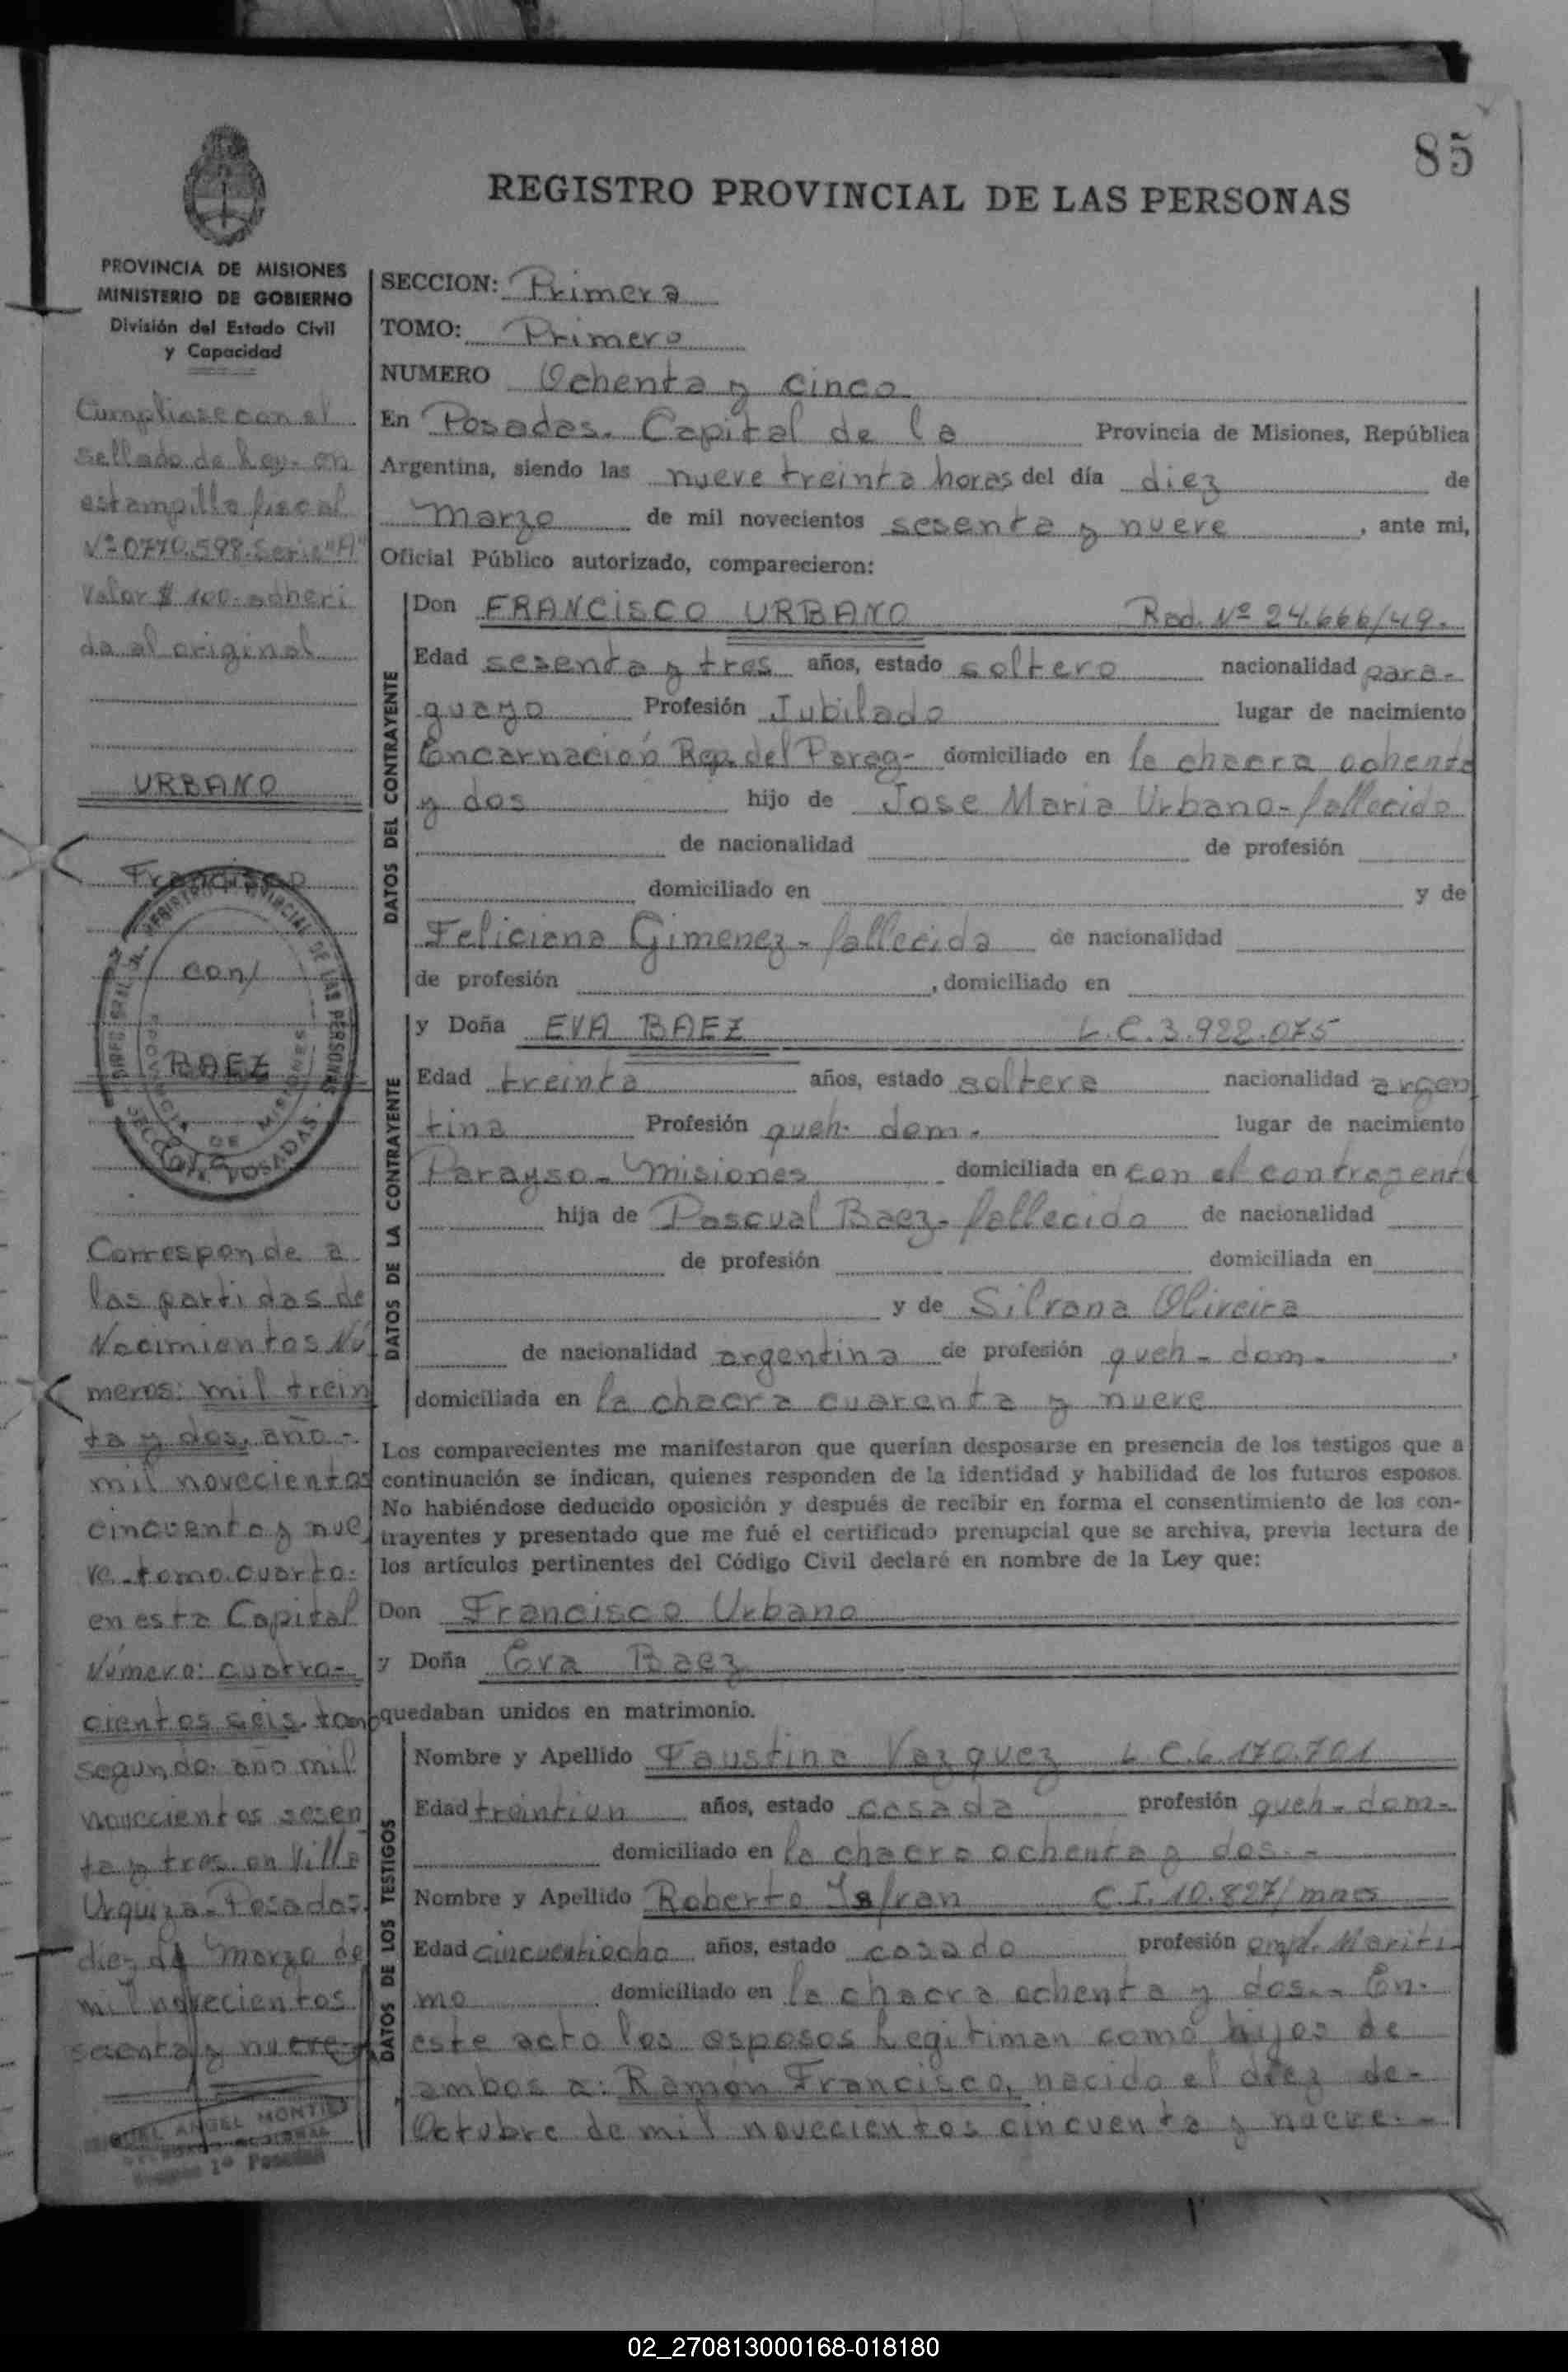 85
REGISTRO PROVINCIAL DE LAS PERSONAS
PROVINCIA DE MISIONES
MINISTERIO DE GOBIERNO
División del Estado Civil
y Capacidad
Cumpliase con el
sellado de Ley. en
estampilla fiscal
Nº 0770.598. Serie "A"
Valor $ 100. adheri
da al original
URBANO
Francisco
con/
BAEZ
REGISTRO PROVINCIAL DE LAS PERSONAS
PROVINCIA DE MISIONES
SECCION POSADAS
Corresponde a
las partidas de
Nacimientos Nú
meros: mil trein
ta y dos, año -
mil novecientos
cincuenta y nue
ve. tomo cuarto.
en esta Capital
Número: cuatro-
cientos seis. tomo
segundo. año mil
novecientos sesen
ta y tres en Villa
Urquiza. Posadas.
diez de Marzo de
mil novecientos
sesenta y nueve
ANGEL MONTIEL
SECCION: Primera
TOMO: Primero
NUMERO Ochenta y cinco
En Posadas. Capital de la Provincia de Misiones, República
Argentina, siendo las nueve treinta horas del día diez de
Marzo de mil novecientos sesenta y nueve, ante mi,
Oficial Público autorizado, comparecieron:
DATOS DEL CONTRAYENTE
Don FRANCISCO URBANO Rad. Nº 24.666/49.
Edad sesenta y tres años, estado soltero nacionalidad para-
guayo Profesión Jubilado lugar de nacimiento
Encarnación Rep. del Parag- domiciliado en la chacra ochenta
y dos hijo de Jose Maria Urbano- fallecido
de nacionalidad de profesión
domiciliado en y de
Feliciana Gimenez - fallecida de nacionalidad
de profesión , domiciliado en
DATOS DE LA CONTRAYENTE
y Doña EVA BAEZ L.C. 3.922.075
Edad treinta años, estado soltera nacionalidad argen
tina Profesión queh. dom. lugar de nacimiento
Parayso - Misiones domiciliada en con el contrayente
hija de Pascual Baez- fallecido de nacionalidad
de profesión domiciliada en
y de Silvana Oliveira
de nacionalidad argentina de profesión queh - dom -
domiciliada en la chacra cuarenta y nueve
Los comparecientes me manifestaron que querían desposarse en presencia de los testigos que a
continuación se indican, quienes responden de la identidad y habilidad de los futuros esposos.
No habiéndose deducido oposición y después de recibir en forma el consentimiento de los con-
trayentes y presentado que me fué el certificado prenupcial que se archiva, previa lectura de
los artículos pertinentes del Código Civil declaré en nombre de la Ley que:
Don Francisco Urbano
y Doña Eva Baez
quedaban unidos en matrimonio.
DATOS DE LOS TESTIGOS
Nombre y Apellido Faustina Vazquez L.C. 6.170.701
Edad treintiun años, estado casada profesión queh - dom -
domiciliado en la chacra ochenta y dos. -
Nombre y Apellido Roberto Isfran C.I. 10.827/mnes
Edad cincuentiocho años, estado casado profesión empl. Mariti
mo domiciliado en la chacra ochenta y dos. - En
este acto los esposos Legitiman como hijos de
ambos a: Ramón Francisco, nacido el diez de-
Octubre de mil novecientos cincuenta y nueve. -
02_270813000168-018180